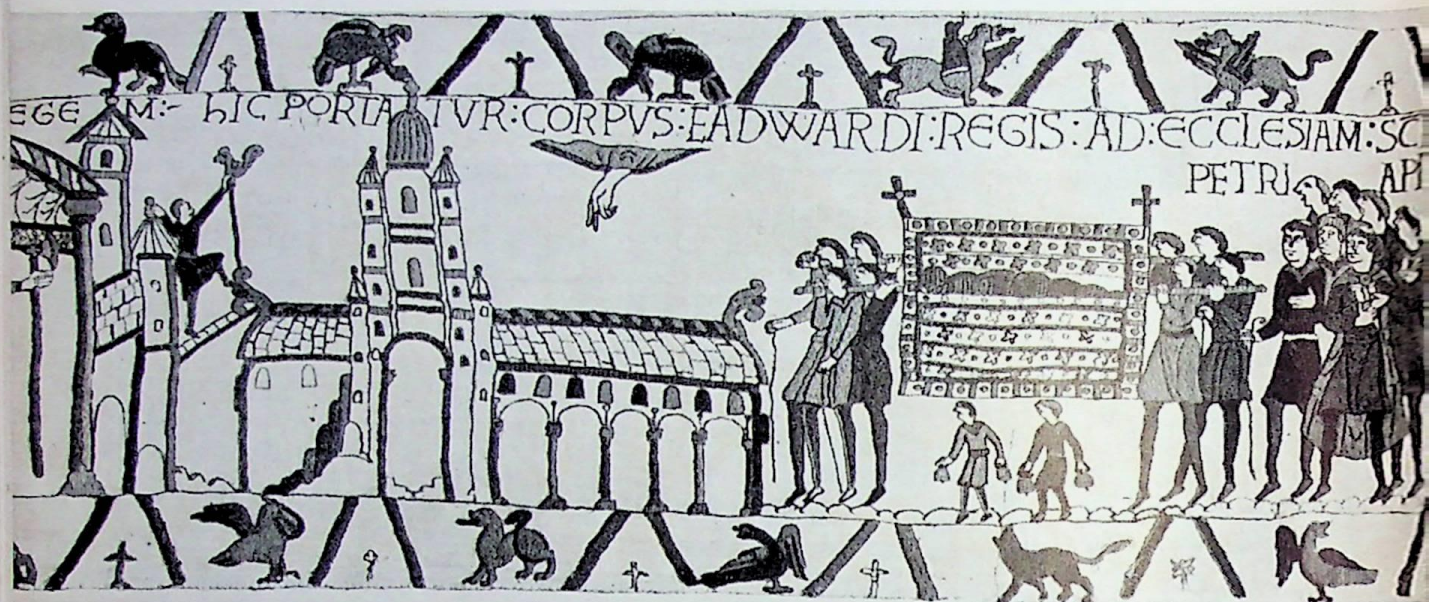 EGE M:- hIC PORTATVR:CORPVS:EADWARDI:REGIS:AD:ECCLESIAM:SC̄
PETRI AP